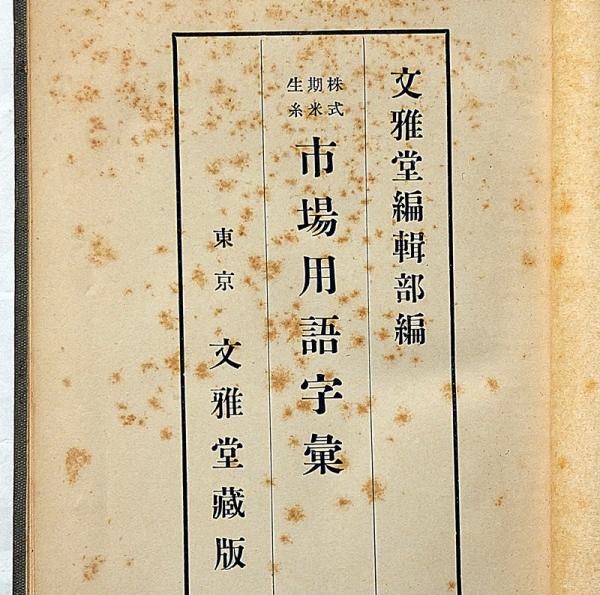 文雅堂編輯部編
株式
期米
生糸
市場用語字彙
東京 文雅堂藏版